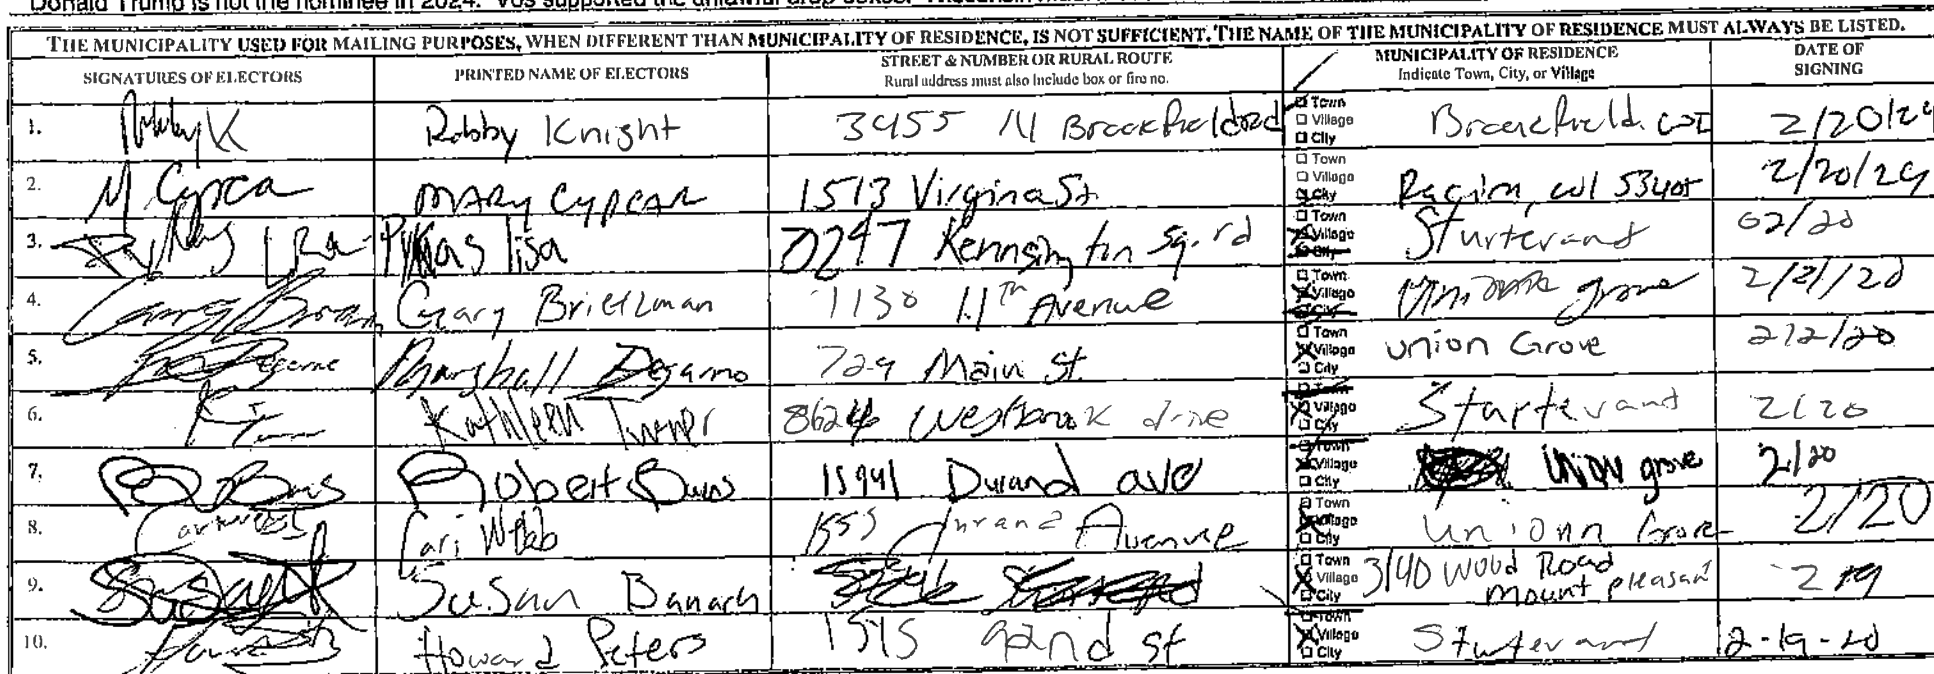 Donald Trump is not the nominee in 2024. Vos supported the unlawful drop boxes.
THE MUNICIPALITY USED FOR MAILING PURPOSES, WHEN DIFFERENT THAN MUNICIPALITY OF RESIDENCE, IS NOT SUFFICIENT. THE NAME OF THE MUNICIPALITY OF RESIDENCE MUST ALWAYS BE LISTED.
SIGNATURES OF ELECTORS PRINTED NAME OF ELECTORS STREET & NUMBER OR RURAL ROUTE Rural address must also include box or fire no. MUNICIPALITY OF RESIDENCE Indicate Town, City, or Village DATE OF SIGNING
1. Robby K Robby Knight 3455 N Brookfield Rd Town Village City Brookfield. WI 2/20/24
2. M Cypca MARY CYPCAR 1513 Virginia St. Town Village City Racine, WI 2/20/24
3. lisa 0247 Kensington Sq. rd Town Village City Sturtevant 02/20
4. Gary 1130 11th Avenue Town Village City grove
5. Marshall 729 Main St. Town Village City Union Grove 2/2/20
6. Kathleen Turner 8624 Westbrook drive Town Village City Sturtevant 2/20
7. Robert 15941 Durand ave Town Village City Union grove 2/20
8. Cari Webb Avenue Town Village City Unionn Grove 2/20
9. Susan Town Village City 3140 Wood Road Mount pleasant
10. Howard Peters 1515 St Town Village City Sturtevant 2-19-20